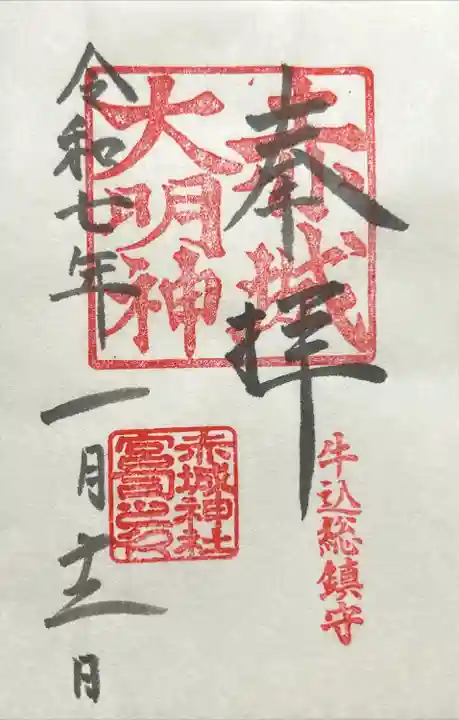 奉拝
赤城
大明神
牛込総鎮守
令和七年
一月十二日
赤城神社
宮司之印